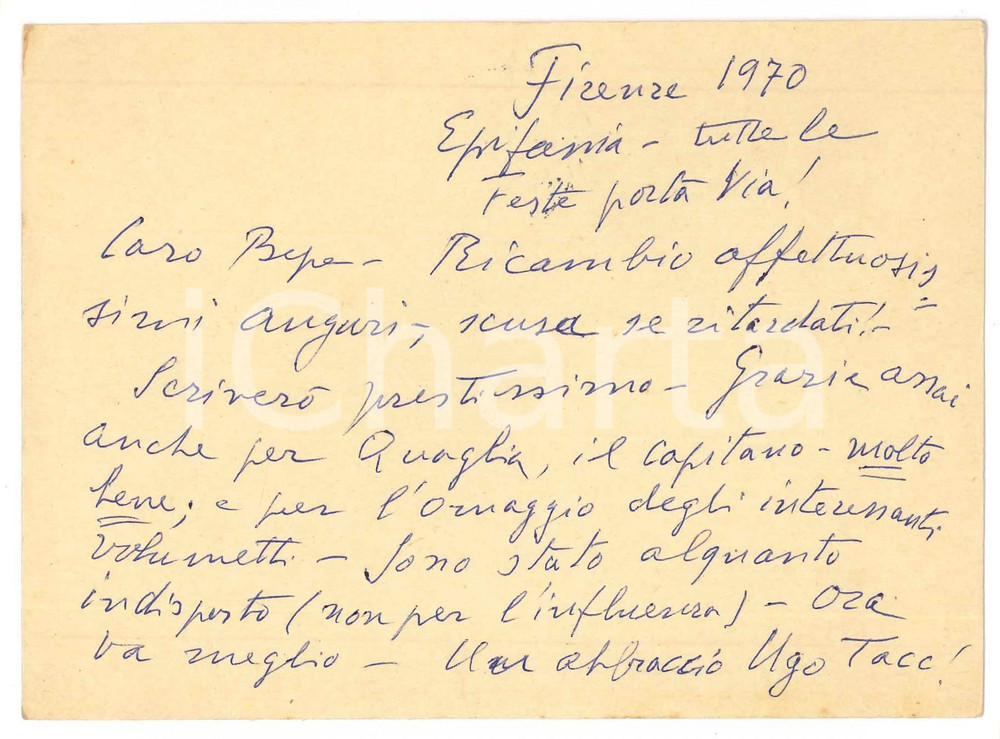 Firenze 1970
Epifania - tutte le
Feste porta via!
Caro Bepe - Ricambio affettuosis=
simi auguri, scusa se ritardati! -
Scriverò prestissimo - Grazie assai
anche per Quaglia, il capitano - molto
bene; e per l'omaggio degli interessanti
volumetti - Sono stato alquanto
indisposto (non per l'influenza) - Ora
va meglio - Un abbraccio Ugo Tacc!
iCharta